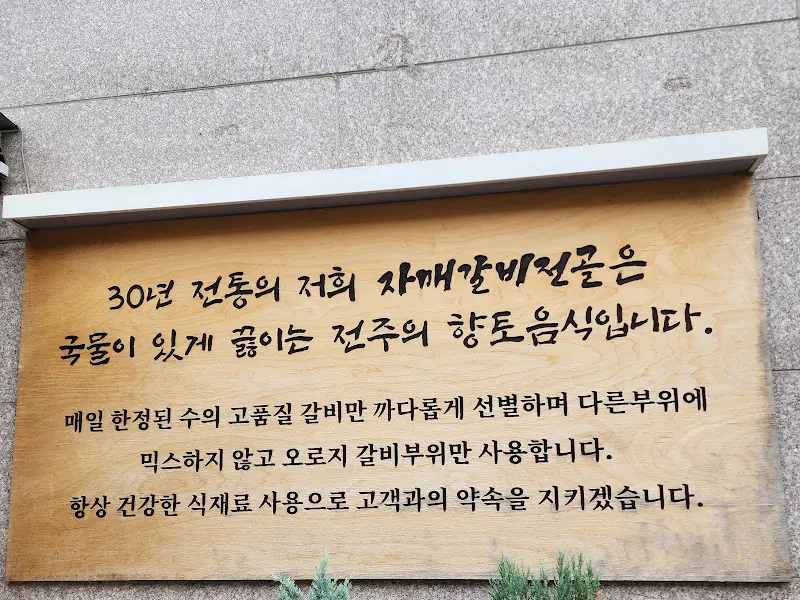 30년 전통의 저희 자매갈비전골은
국물이 있게 끓이는 전주의 향토음식입니다.
매일 한정된 수의 고품질 갈비만 까다롭게 선별하며 다른부위에
믹스하지 않고 오로지 갈비부위만 사용합니다.
항상 건강한 식재료 사용으로 고객과의 약속을 지키겠습니다.